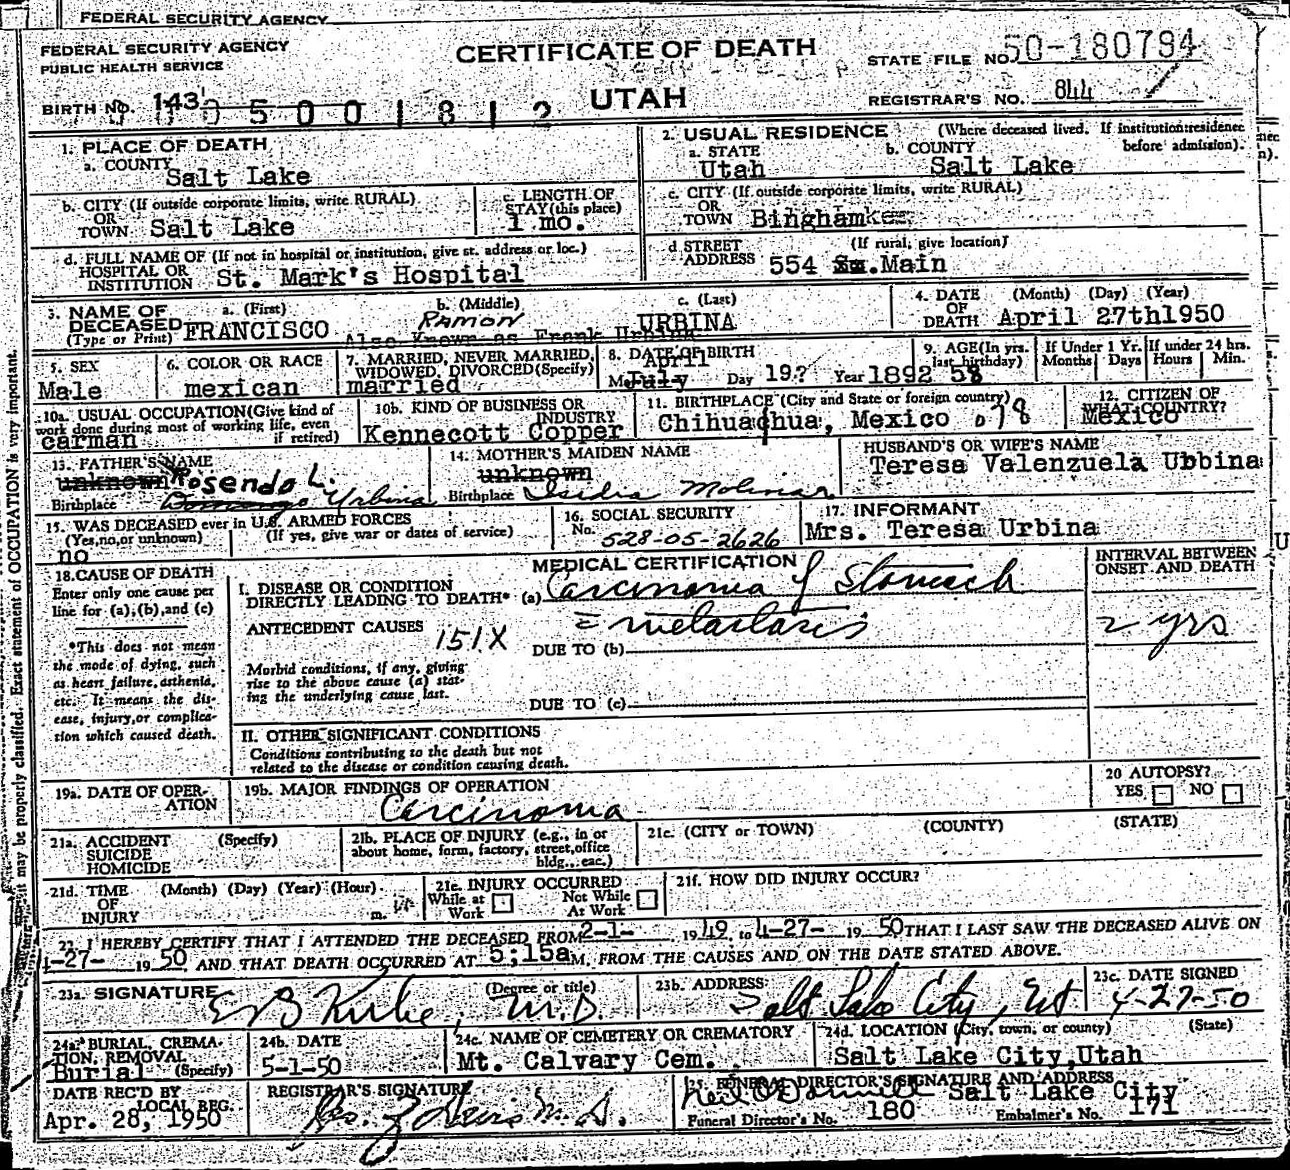 FEDERAL SECURITY AGENCY
FEDERAL SECURITY AGENCY
PUBLIC HEALTH SERVICE
CERTIFICATE OF DEATH
UTAH
STATE FILE NO. 50-180794
REGISTRAR'S NO. 844
BIRTH NO. 143
05001812
1. PLACE OF DEATH
a. COUNTY Salt Lake
2. USUAL RESIDENCE (Where deceased lived. If institution: residence before admission).
a. STATE Utah b. COUNTY Salt Lake
b. CITY (If outside corporate limits, write RURAL) OR TOWN Salt Lake
c. LENGTH OF STAY (this place) 1 mo.
c. CITY (If outside corporate limits, write RURAL) OR TOWN Bingham
d. FULL NAME OF (If not in hospital or institution, give st. address or loc.) HOSPITAL OR INSTITUTION St. Mark's Hospital
d STREET ADDRESS (If rural, give location) 554 Main
3. NAME OF DECEASED (Type or Print) a. (First) FRANCISCO b. (Middle) RAMON c. (Last) URBINA
Also Known as Frank Urbina
4. DATE OF DEATH (Month) (Day) (Year) April 27th 1950
5. SEX Male
6. COLOR OR RACE mexican
7. MARRIED, NEVER MARRIED, WIDOWED, DIVORCED (Specify) married
8. DATE OF BIRTH April July Day 19? Year 1892
9. AGE (In yrs. last birthday) 58
If Under 1 Yr. Months Days
If under 24 hrs. Hours Min.
10a. USUAL OCCUPATION (Give kind of work done during most of working life, even if retired) carman
10b. KIND OF BUSINESS OR INDUSTRY Kennecott Copper
11. BIRTHPLACE (City and State or foreign country) Chihuachua, Mexico 078
12. CITIZEN OF WHAT COUNTRY? Mexico
13. FATHER'S NAME unknown Rosendo L. Urbina
Birthplace Domongo
14. MOTHER'S MAIDEN NAME unknown
Birthplace Isidia Molinar
HUSBAND'S OR WIFE'S NAME Teresa Valenzuela Ubbina
15. WAS DECEASED ever in U.S. ARMED FORCES (Yes, no, or unknown) (If yes, give war or dates of service) no
16. SOCIAL SECURITY No. 528-05-2626
17. INFORMANT Mrs. Teresa Urbina
18. CAUSE OF DEATH
Enter only one cause per line for (a), (b), and (c)
*This does not mean the mode of dying, such as heart failure, asthenia, etc. It means the disease, injury, or complication which caused death.
MEDICAL CERTIFICATION
INTERVAL BETWEEN ONSET AND DEATH
I. DISEASE OR CONDITION DIRECTLY LEADING TO DEATH* (a) Carcinoma of Stomach
ANTECEDENT CAUSES 151X
c̄ metastasis
2 yrs
DUE TO (b)
Morbid conditions, if any, giving rise to the above cause (a) stating the underlying cause last.
DUE TO (c)
II. OTHER SIGNIFICANT CONDITIONS
Conditions contributing to the death but not related to the disease or condition causing death.
19a. DATE OF OPERATION
19b. MAJOR FINDINGS OF OPERATION
Carcinoma
20 AUTOPSY? YES NO
21a. ACCIDENT SUICIDE HOMICIDE (Specify)
21b. PLACE OF INJURY (e.g., in or about home, form, factory, street, office bldg., eac.)
21c. (CITY or TOWN) (COUNTY) (STATE)
21d. TIME OF INJURY (Month) (Day) (Year) (Hour) m.
21e. INJURY OCCURRED While at Work Not While At Work
21f. HOW DID INJURY OCCUR?
22. I HEREBY CERTIFY THAT I ATTENDED THE DECEASED FROM 2-1- 1949, to 4-27- 1950 THAT I LAST SAW THE DECEASED ALIVE ON
4-27- 1950 AND THAT DEATH OCCURRED AT 5:15a M. FROM THE CAUSES AND ON THE DATE STATED ABOVE.
23a. SIGNATURE (Degree or title) M.D.
23b. ADDRESS: Salt Lake City, Ut
23c. DATE SIGNED 4-27-50
24a. BURIAL, CREMATION, REMOVAL (Specify) Burial
24b. DATE 5-1-50
24c. NAME OF CEMETERY OR CREMATORY Mt. Calvary Cem.
24d. LOCATION (City, town, or county) (State) Salt Lake City, Utah
DATE REC'D BY LOCAL REG. Apr. 28, 1950
REGISTRAR'S SIGNATURE M.D.
25. FUNERAL DIRECTOR'S SIGNATURE AND ADDRESS Neil O'Donnell Salt Lake City
Funeral Director's No. 180 Embalmer's No. 171
it may be properly classified. Exact statement of OCCUPATION is very important.